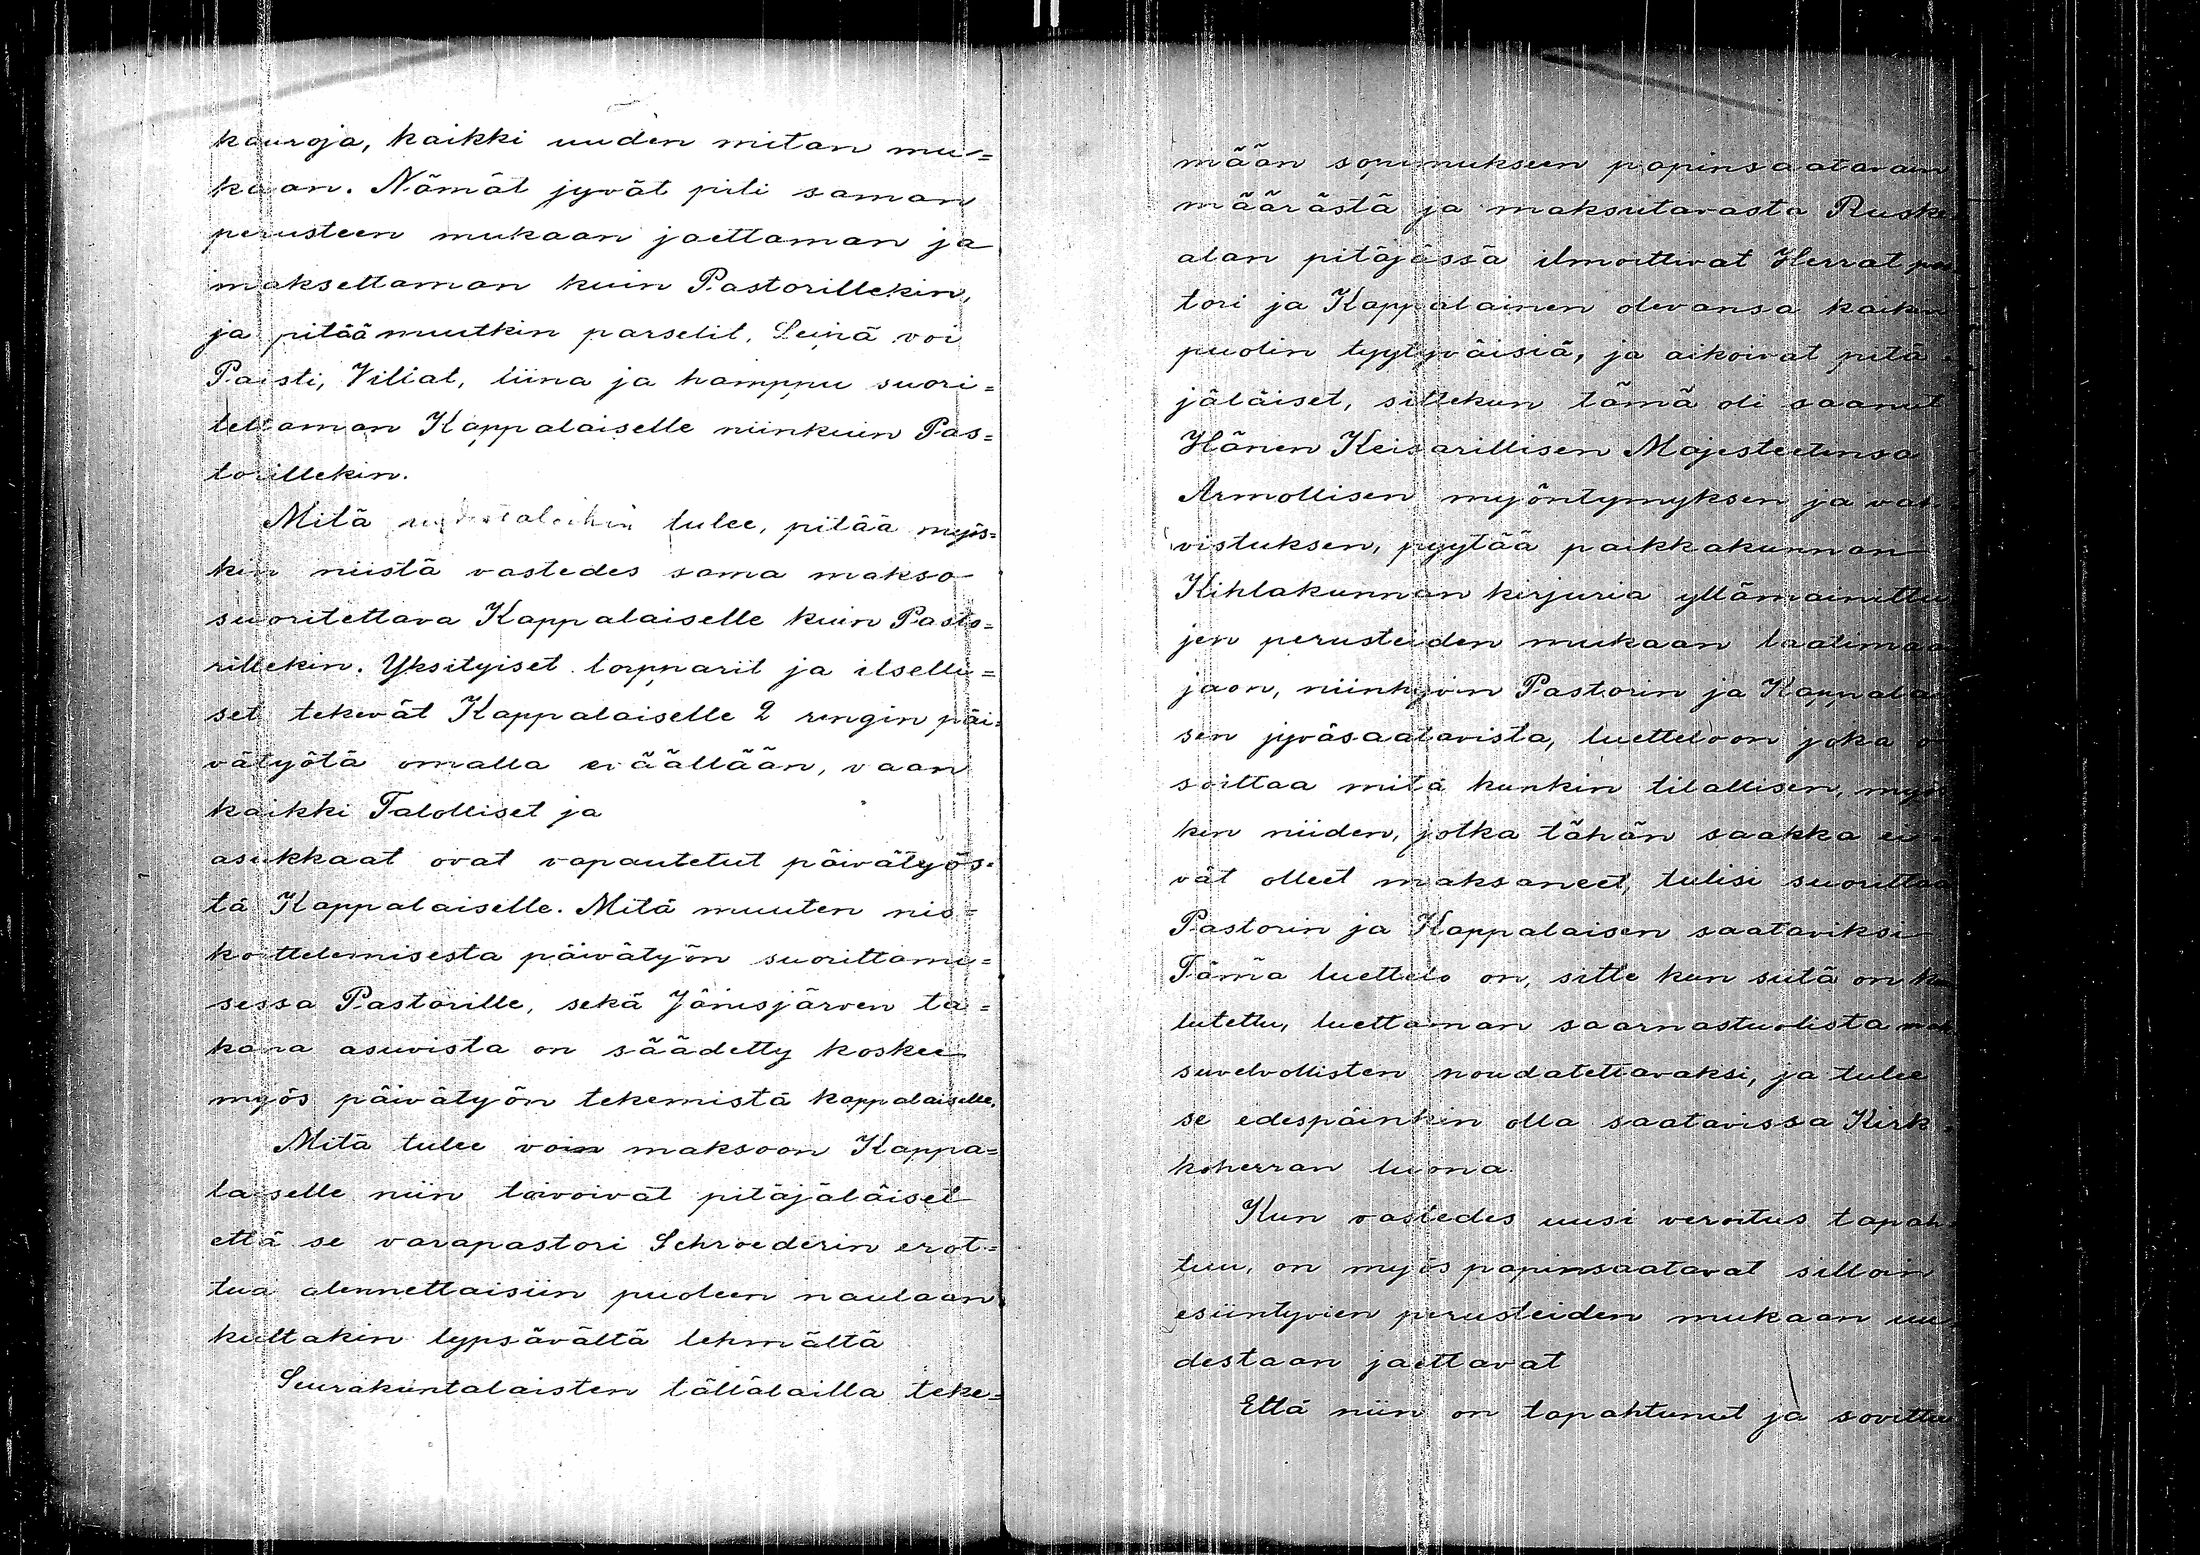 kauroja, kaikki uuden mitan mu=
kaan. Nämät jyvät piti saman
perusteen mukaan jaettaman ja
maksettaman kuin Pastorillekin,
ja pitää muutkin parselit, Leinä voi
Paisti, Villat, liina ja hamppu suori=
tettaman Kappalaiselle niinkuin Pas=
torillekin.
Mitä tulee, pitää myös=
kin niistä vastedes sama makso
suoritettava Kappalaiselle kuin Pasto=
rillekin. Yksityiset torpparit ja itselli=
set tekevät Kappalaiselle 2 rengin päi=
vätyötä omalla eväällään, vaan
kaikki Talolliset ja
asukkaat ovat vapautetut päivätyös=
tä Kappalaiselle. Mitä muuten nis=
koittelemisesta päivätyön suorittami=
sessa Pastorille, sekä Jänisjärven ta=
kana asuvista on säädetty koskee
myös päivätyön tekemistä kappalaiselle.
Mitä tulee voin maksoon Kappa=
laiselle niin toivoivat pitäjäläiset
että se varapastori Schroederin erot=
tua alennettaisiin puoleen naulaan
kultakin lypsävältä lehmältä
Seurakuntalaisten tällälailla teke=
mään sopimukseen papinsaatavain
määrästä ja maksutavasta Ruske
alan pitäjässä ilmoittivat Herrat pas
tori ja Kappalainen olevansa kaikin
puolin tyytyväisiä, ja aikoivat pitä=
jäläiset, sittekun tämä oli saanut
Hänen Keisarillisen Majesteetinsa
Armollisen myöntymyksen ja vah
vistuksen, pyytää paikkakunnan
Kihlakunnan kirjuria yllämainittu
jen perusteiden mukaan laatimaa
jaon, niinhyvin Pastorin ja Kappalai
sen jyväsaatavista, luetteloon joka o
soittaa mitä kunkin tilallisen, myös
kin niiden, jotka tähän saakka ei=
vät olleet maksaneet, tulisi suorittaa
Pastorin ja Kappalaisen saataviksi
Tämä luettelo on, sitte kun siitä on ku
lutettu, luettaman saarnastuolista mak
suvelvollisten noudatettavaksi, ja tulee
se edespäinkin olla saatavissa Kirk=
koherran luona.
Kun vastedes uusi veroitus tapah=
tuu, on myös papinsaatavat silloin
esiintyvien perusteiden mukaan uu
destaan jaettavat
Että niin on tapahtunut ja sovittu